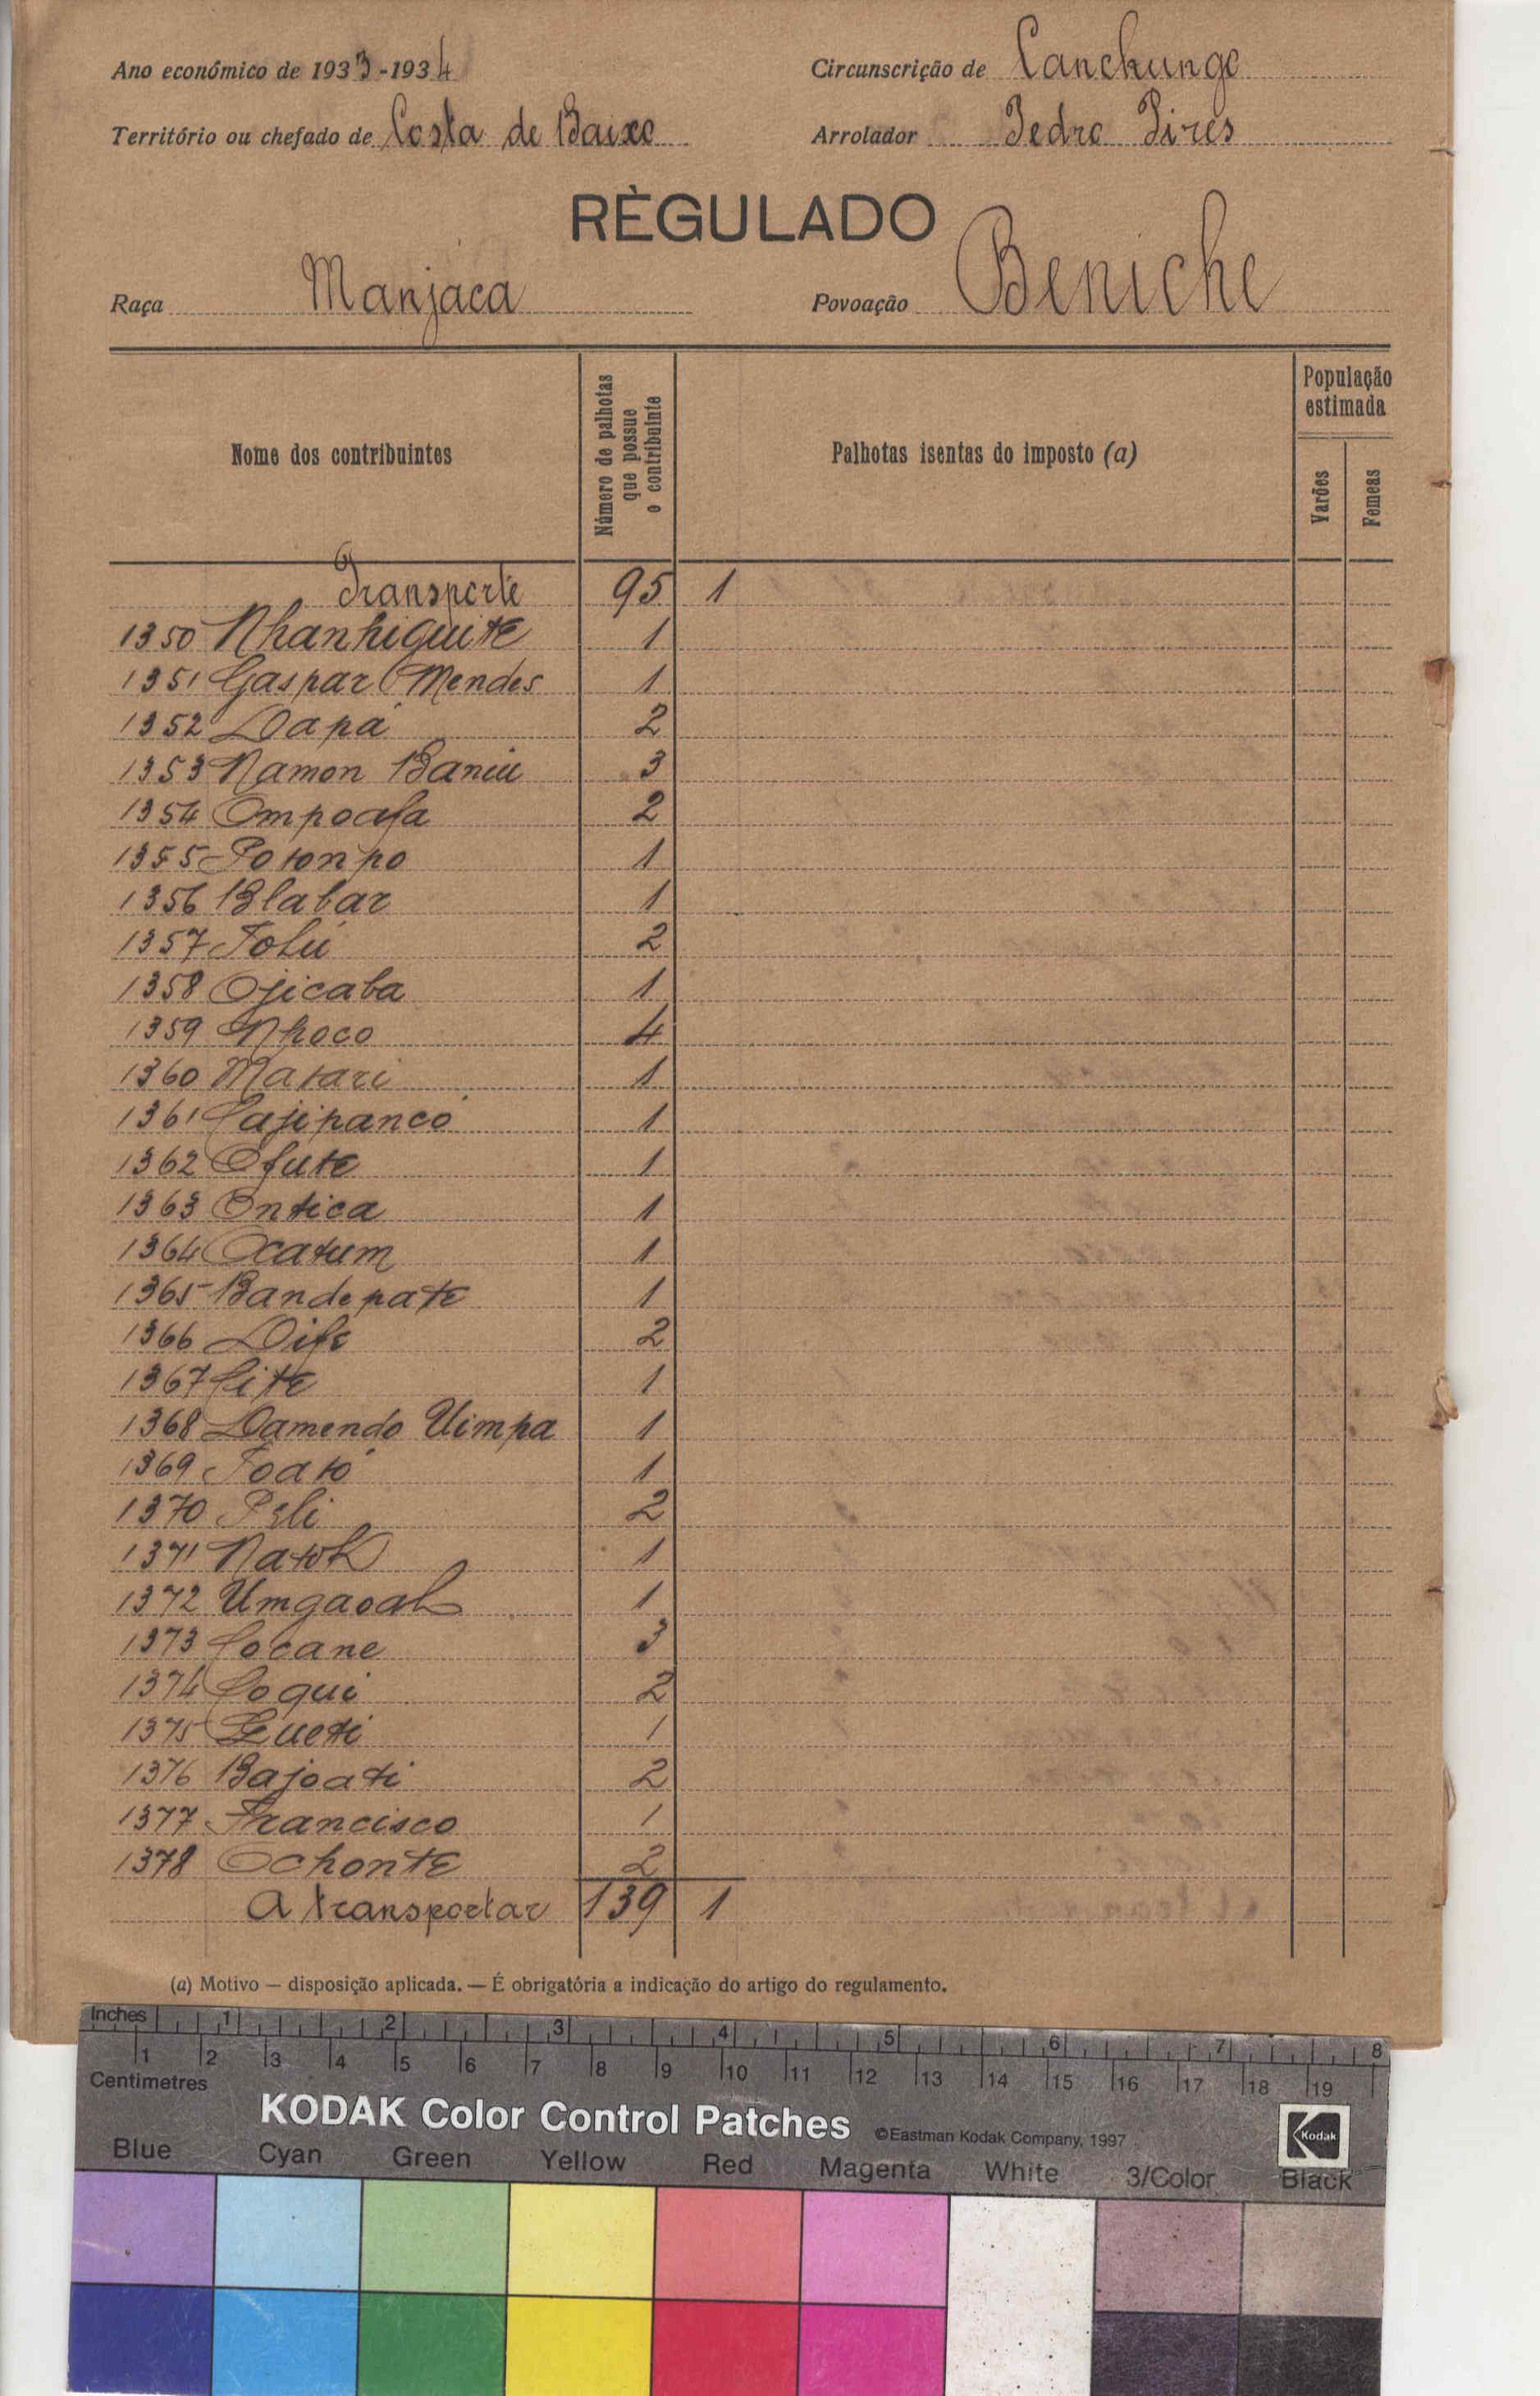 Ano económico de 1933-1934
Circunscrição de Canchungo
Território ou chefado de Costa de Baixo
Arrolador Pedro Pires
RÈGULADO
Raça Manjaca
Povoação Beniche
Nome dos contribuintes
Número de palhotas que possue o contribuinte
Palhotas isentas do imposto (a)
População estimada
Varões
Femeas
Transporte 95 1
1350 Nhanhiguite 1
1351 Gaspar Mendes 1
1352 Dapá 2
1353 Namon Baniu 3
1354 Ompoafa 2
1355 Potonpo 1
1356 Blabar 1
1357 Tolú 2
1358 Ojicaba 1
1359 Nhoco 4
1360 Matari 1
1361 Cajipancó 1
1362 Ofute 1
1363 Ontica 1
1364 Ocatum 1
1365 Bandepate 1
1366 Dife 2
1367 Cite 1
1368 Damendo Uimpa 1
1369 Toató 1
1370 Peli 2
1371 1
1372 1
1373 Cocane 3
1374 Coqui 2
1375 1
1376 Bajoati 2
1377 Francisco 1
1378 Ochonte 2
A transportar 139 1
(a) Motivo — disposição aplicada. — É obrigatória a indicação do artigo do regulamento.
Inches 1 2 3 4 5 6 7 8
1 2 3 4 5 6 7 8 9 10 11 12 13 14 15 16 17 18 19
Centimetres
KODAK Color Control Patches ©Eastman Kodak Company, 1997 Kodak
Blue Cyan Green Yellow Red Magenta White 3/Color Black